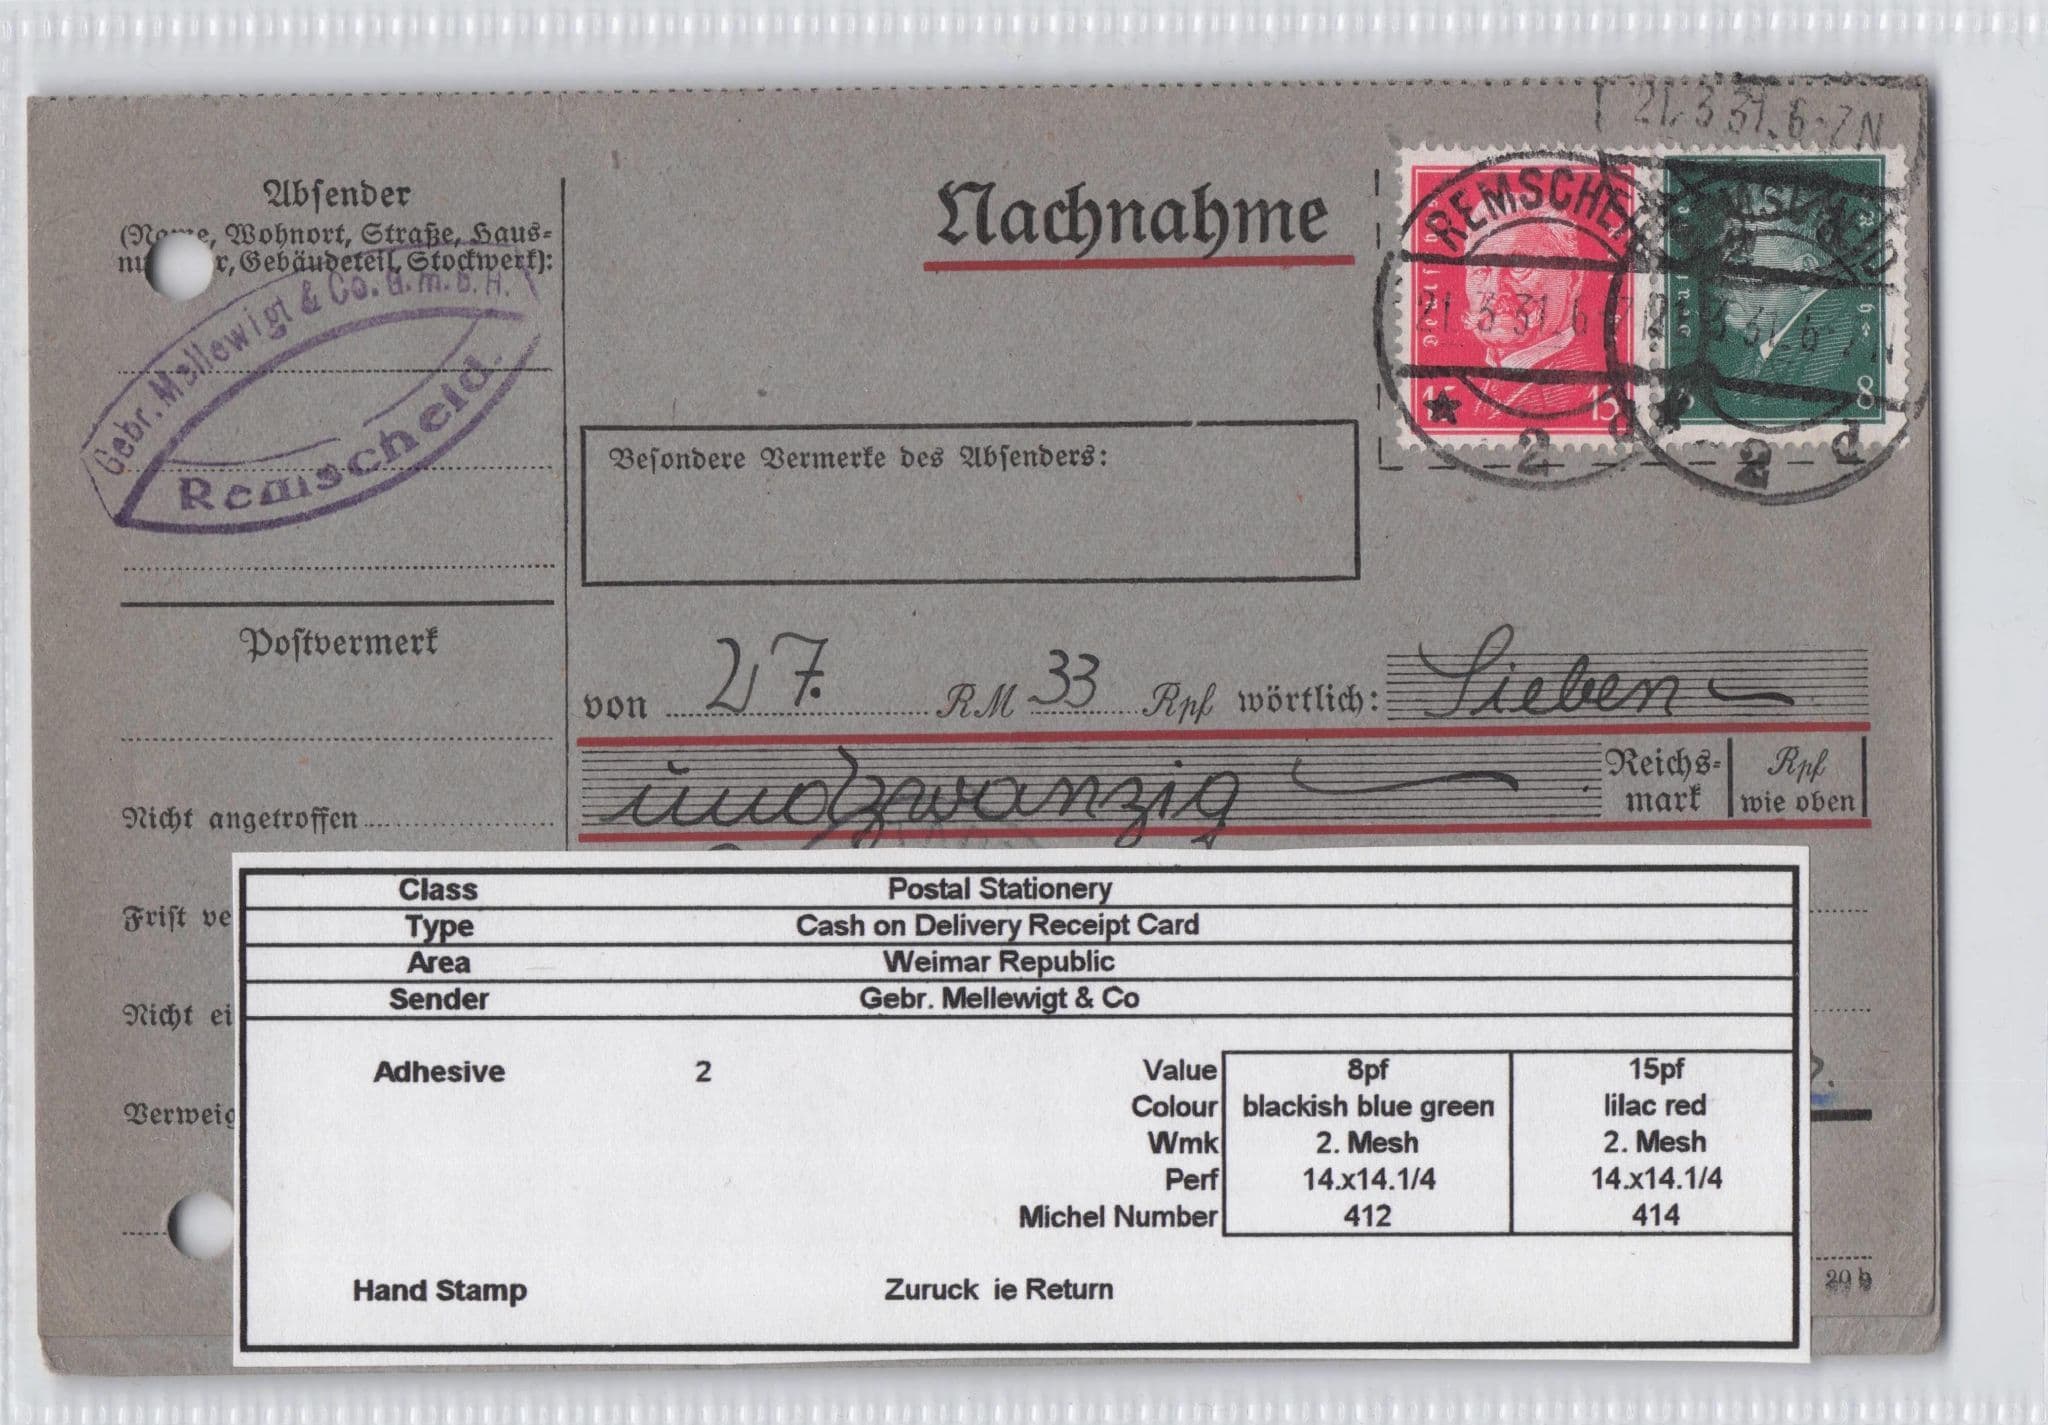 21.3.31.6-7N
Absender
(Name, Wohnort, Straße, Haus=
nummer, Gebäudeteil, Stockwerk):
Gebr. Mellewigt & Co. G.m.b.H.
Remscheid.
Nachnahme
REMSCHEID
21.3.31.6-7N
* 2 d
REMSCHEID
21.3.31.6-7N
* 2 d
15 15
8
Besondere Vermerke des Absenders:
Postvermerk
von 27. RM 33 Rpf wörtlich: Sieben
undzwanzig Reichs= Rpf
mark wie oben
Nicht angetroffen
Frist ve
Nicht ei
Verweig
Class Postal Stationery
Type Cash on Delivery Receipt Card
Area Weimar Republic
Sender Gebr. Mellewigt & Co
Adhesive 2 Value 8pf 15pf
Colour blackish blue green lilac red
Wmk 2. Mesh 2. Mesh
Perf 14.x14.1/4 14.x14.1/4
Michel Number 412 414
Hand Stamp Zuruck ie Return